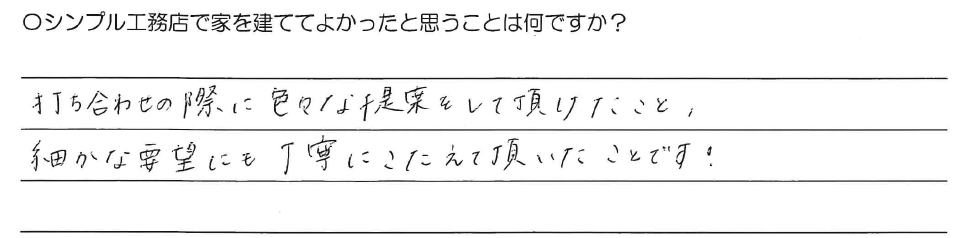 ○シンプル工務店で家を建ててよかったと思うことは何ですか？
打ち合わせの際に色々な提案をして頂けたこと、
細かな要望にも丁寧にこたえて頂いたことです！